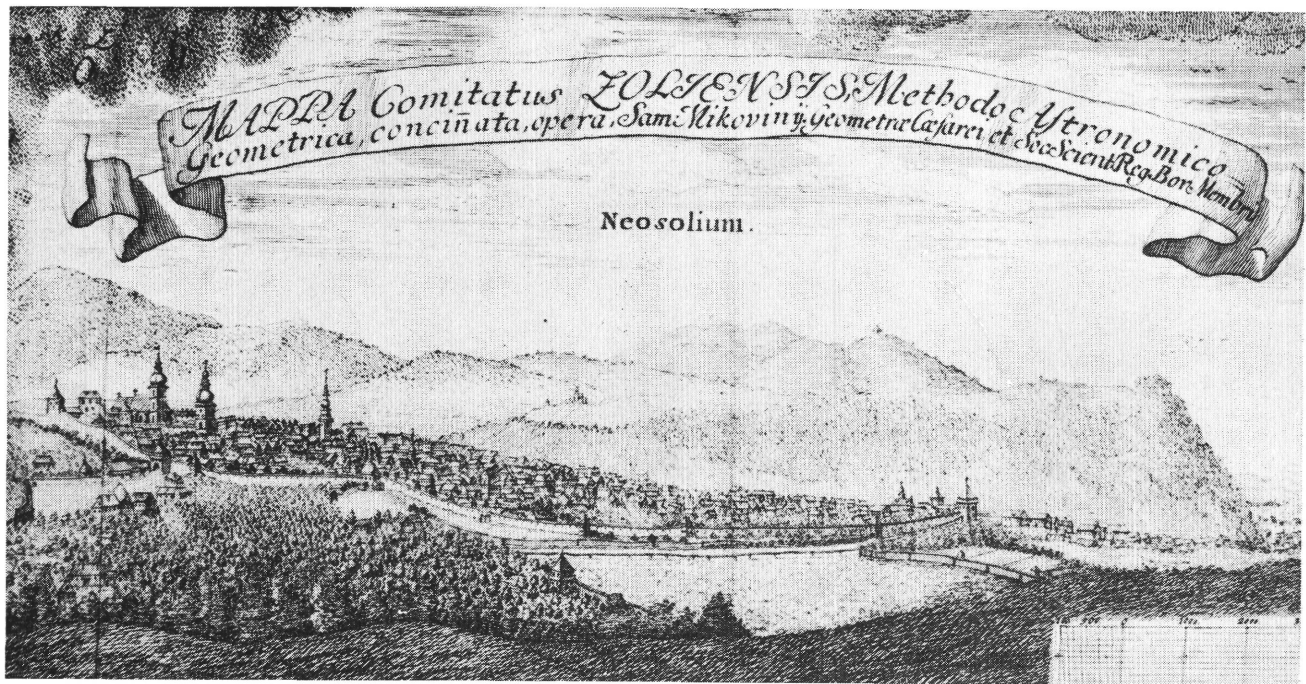 MAPPA Comitatus ZOLIENSIS, Methodo Astronomico
Geometrica, concin̄ata, opera, Sam: Mikovinÿ, Geometræ Cæsarei, et Soc: Scient: Reg: Bor: Membri
Neosolium.
1000 2000